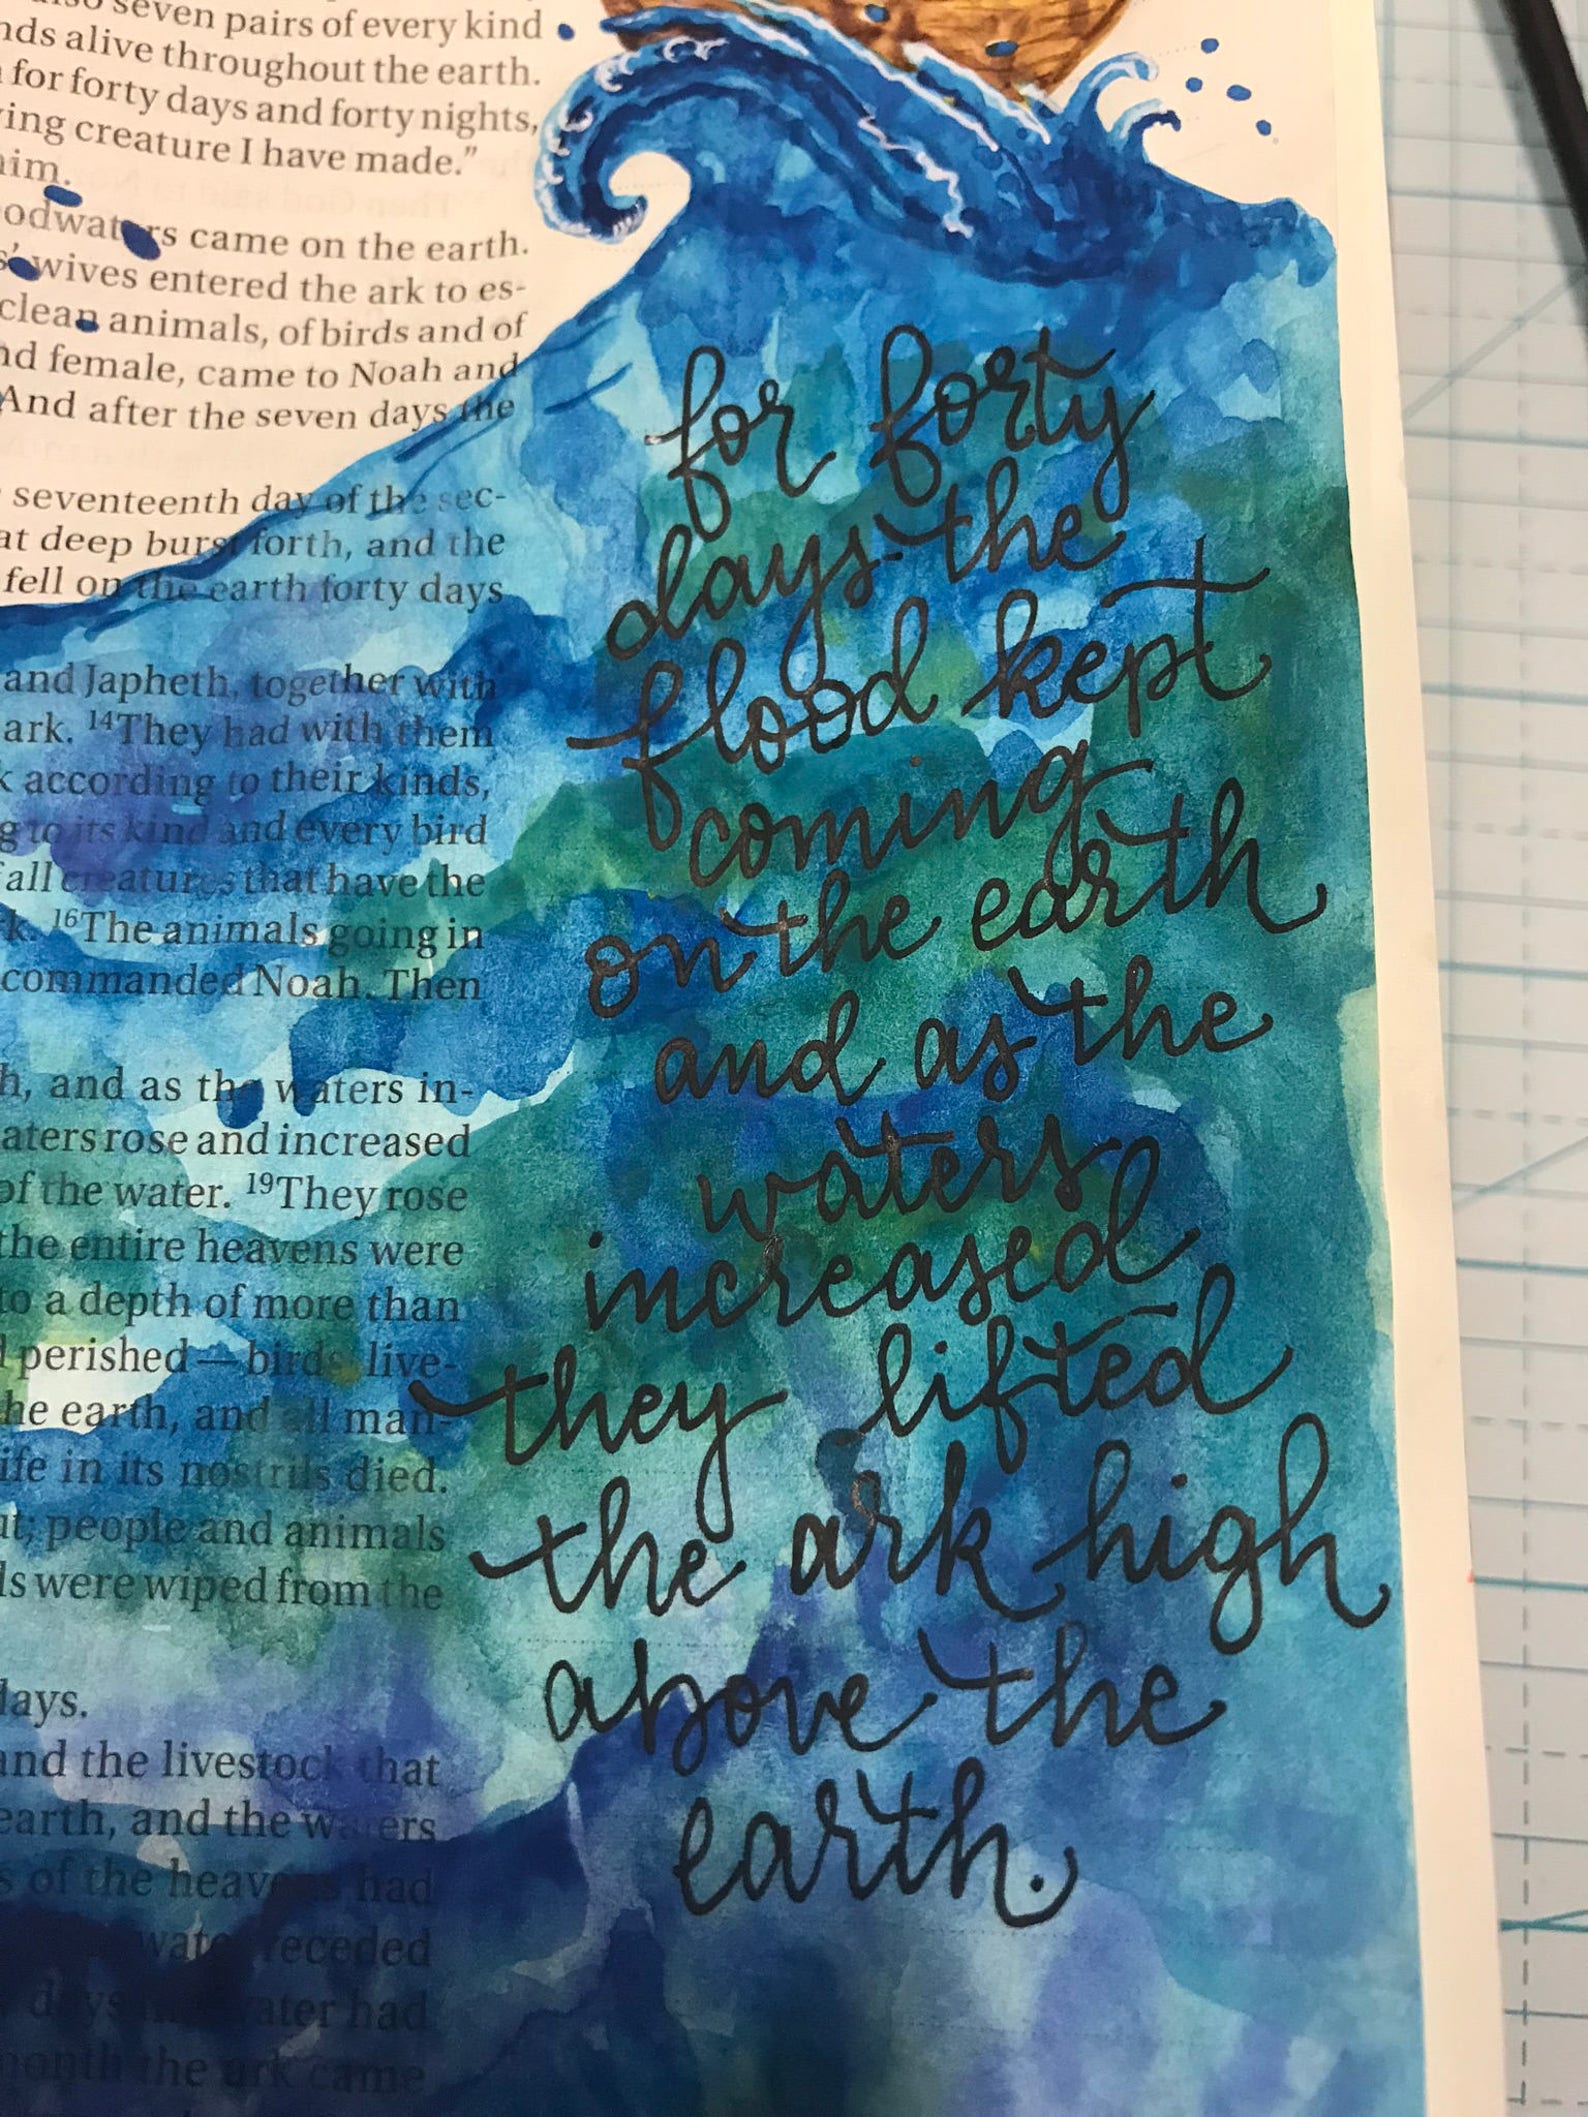 seven pairs of every kind
nds alive throughout the earth.
for forty days and forty nights,
ing creature I have made.”
him.
odwaters came on the earth.
s’ wives entered the ark to es-
clean animals, of birds and of
nd female, came to Noah and
And after the seven days the
seventeenth day of the sec-
at deep burst forth, and the
fell on the earth forty days
and Japheth, together with
ark. 14They had with them
k according to their kinds,
g to its kind and every bird
all creatures that have the
k. 16The animals going in
commanded Noah. Then
h, and as the waters in-
aters rose and increased
of the water. 19They rose
the entire heavens were
to a depth of more than
perished—birds, live-
he earth, and all man-
ife in its nostrils died.
ut; people and animals
ls were wiped from the
days.
and the livestock that
earth, and the waters
s of the heavens had
water receded
days the water had
month the ark came
for forty
days the
flood kept
coming
on the earth
and as the
waters
increased
they lifted
the ark high
above the
earth.